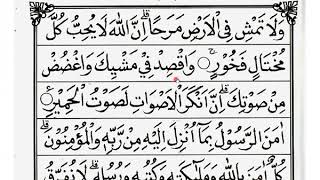 وَلَا تَمْشِ فِي الْاَرْضِ مَرَحًا ۗ اِنَّ اللّٰهَ لَا يُحِبُّ كُلَّ
مُخْتَالٍ فَخُوْرٍ ۝ وَاقْصِدْ فِيْ مَشْيِكَ وَاغْضُضْ
مِنْ صَوْتِكَ ۗ اِنَّ اَنْكَرَ الْاَصْوَاتِ لَصَوْتُ الْحَمِيْرِ ۝
اٰمَنَ الرَّسُوْلُ بِمَآ اُنْزِلَ اِلَيْهِ مِنْ رَّبِّهٖ وَالْمُؤْمِنُوْنَ ۗ
كُلٌّ اٰمَنَ بِاللّٰهِ وَمَلٰٓئِكَتِهٖ وَكُتُبِهٖ وَرُسُلِهٖ ۗ لَا نُفَرِّقُ